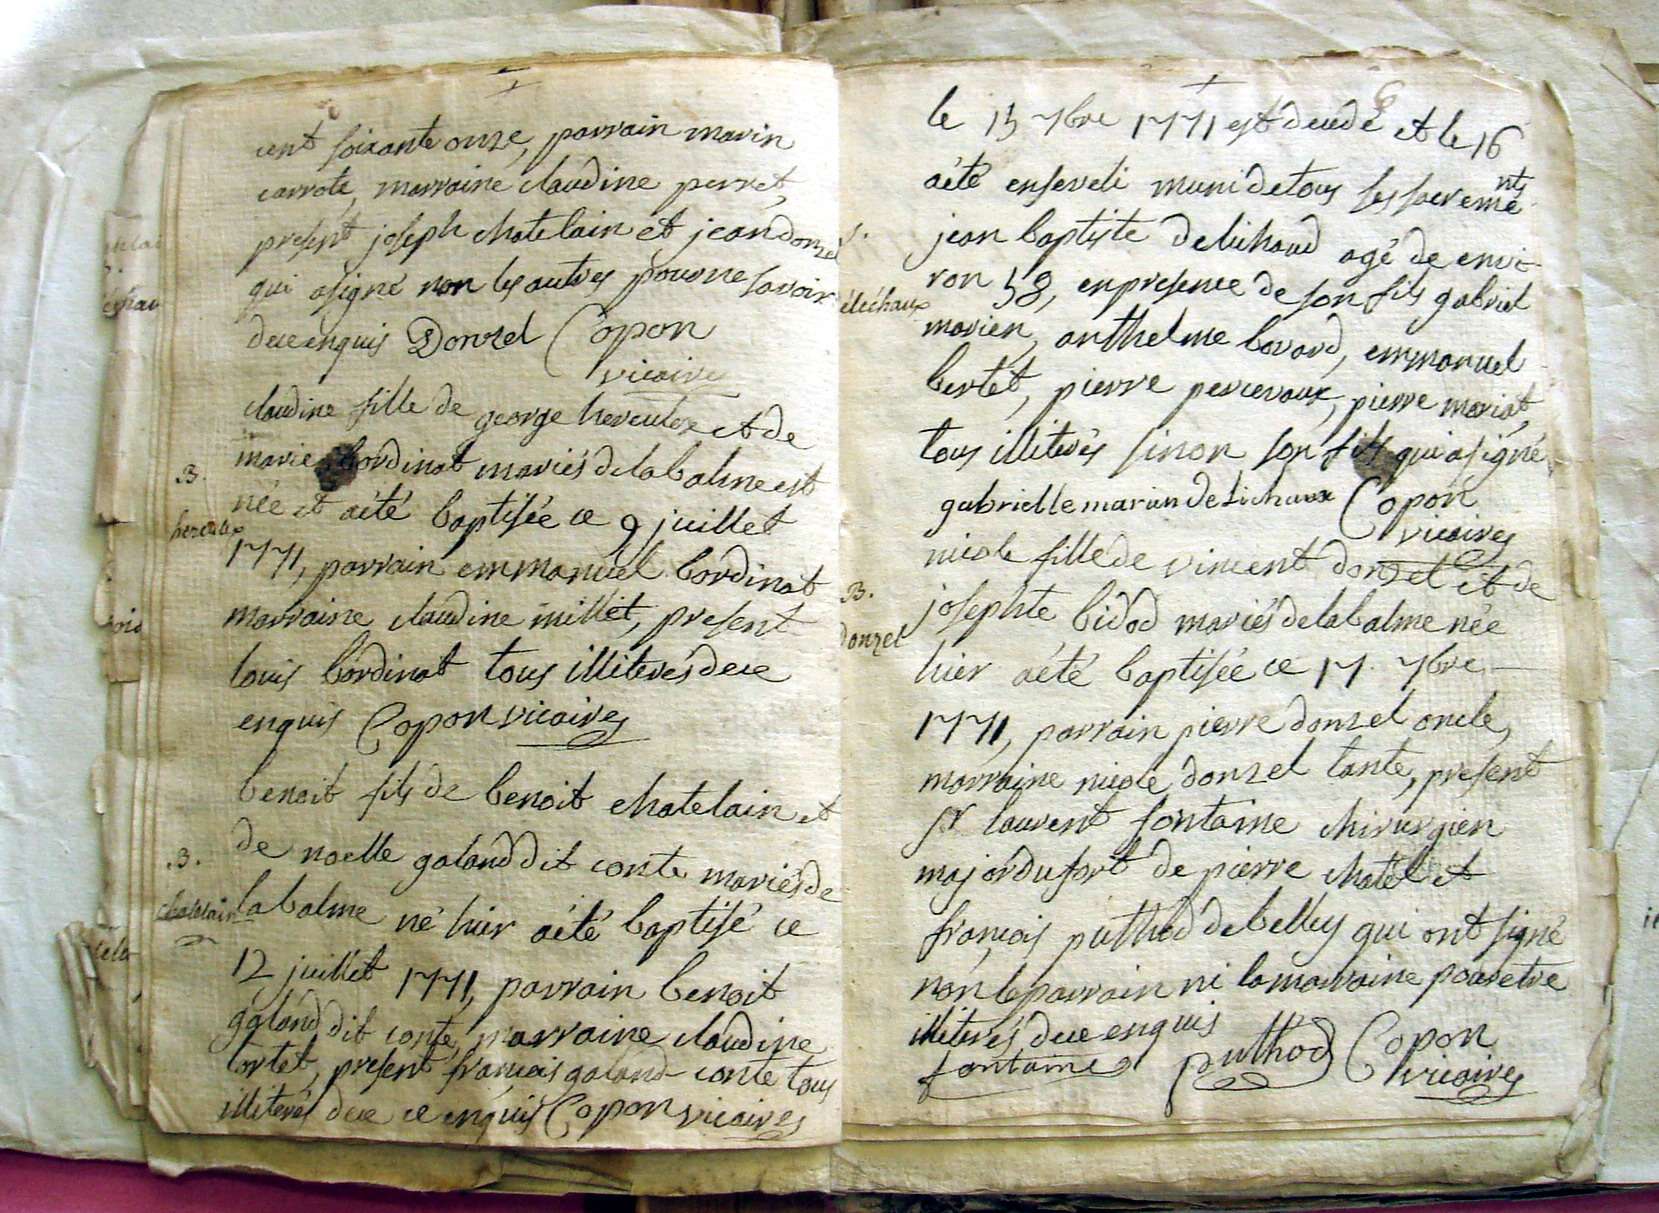 cent soixante onze, parrain marin
carrote, marraine claudine perret,
present joseph chatelain et jean donzel
qui a signé non les autres pour ne savoir
de ce enquis Donzel Copon
vicaire
claudine fille de george herculex et de
marie bordinat mariés de la balme est
B.
née et a été baptisée ce 9 juillet
1771, parrain emmanuel bordinat
marraine claudine millet, present
louis bordinat tous illiterés de ce
enquis Copon vicaire
benoit fils de benoit chatelain et
de noelle galand dit conte mariés de
.B.
chatelain
la balme né hier a été baptisé ce
12 juillet 1771, parrain benoit
galand dit conte, marraine claudine
tortet, present françois galand conte tous
illiterés de ce enquis Copon vicaire
le 15 7bre 1771 est decedé et le 16
a été enseveli muni de tous ses sacremen̄ts
jean baptiste delichaud agé de envi-
ron 58, en presence de son fils gabriel
marien, anthelme bovard, emmanuel
bertet, pierre percevaux, pierre mariat,
tous illiterés sinon son fils qui a signé
gabrielle marian delichaux Copon
vicaire
nicole fille de vincent donzel et de
B.
josephte bidod mariés de la balme née
donzel
hier a été baptisée ce 17 7bre
1771, parrain pierre donzel oncle,
marraine nicole donzel tante, present
sr laurent fontaine chirurgien
major du fort de pierre chatel et
françois puthod de belley qui ont signé
non le parrain ni la marraine pour etre
illiterés de ce enquis
fontaine puthod Copon
vicaire